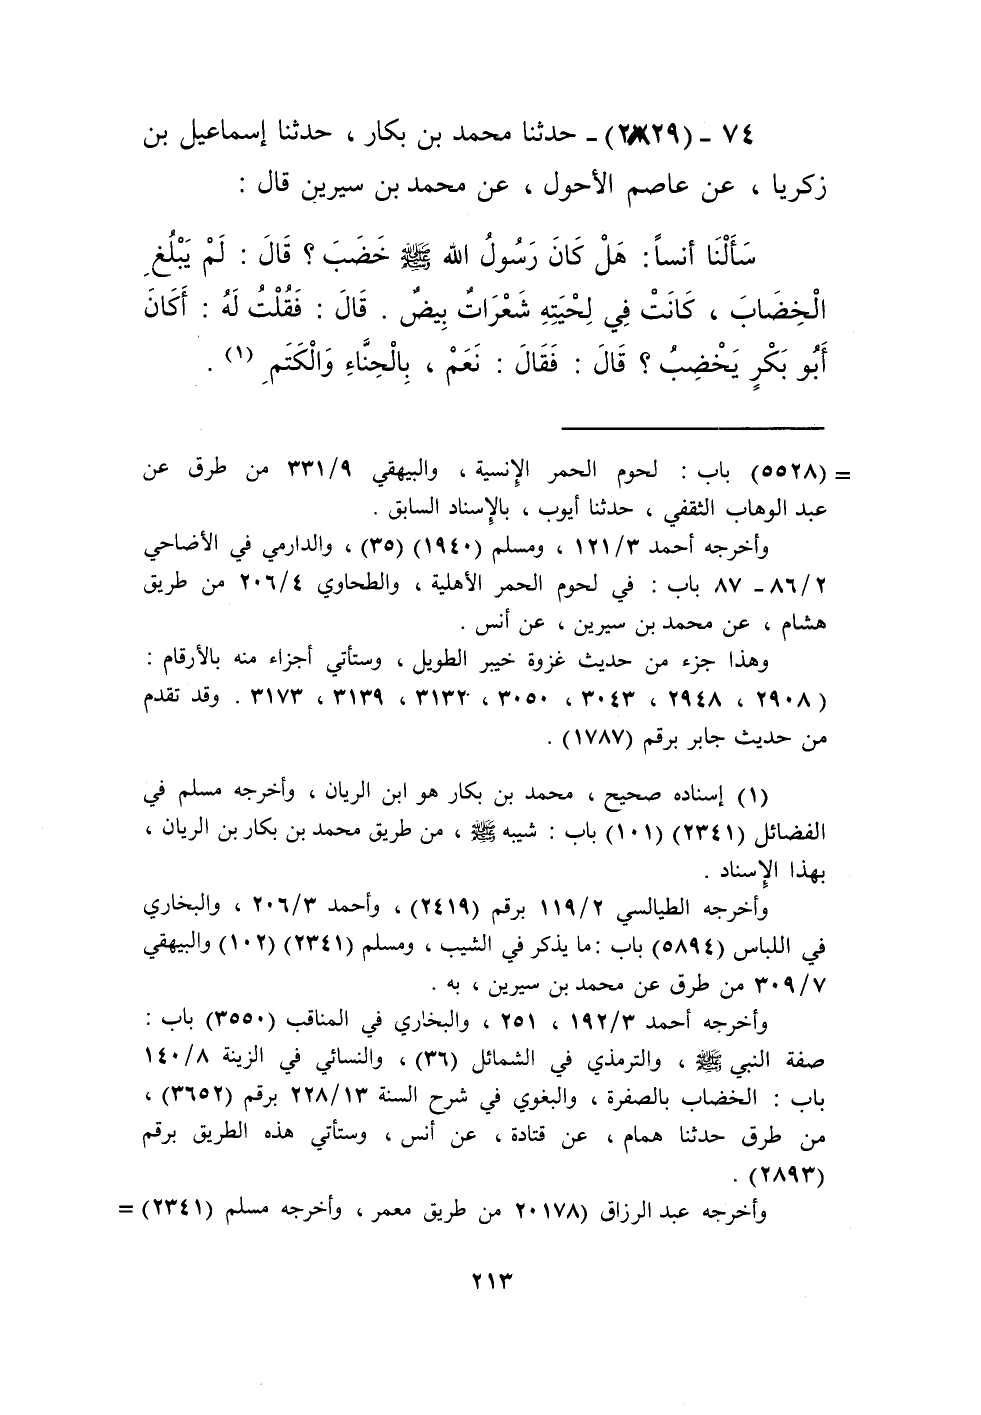 ٧٤ - (٢٨٢٩) - حدثنا محمد بن بكار ، حدثنا إسماعيل بن
زكريا ، عن عاصم الأحول ، عن محمد بن سيرين قال :
سَأَلْنَا أنساً: هَلْ كَانَ رَسُولُ الله ﷺ خَضَبَ ؟ قَالَ : لَمْ يَبْلُغِ
الْخِضَابَ ، كَانَتْ فِي لِحْيَتِهِ شَعْرَاتٌ بِيضٌ . قَالَ : فَقُلْتُ لَهُ : أَكَانَ
أَبُو بَكْرٍ يَخْضِبُ ؟ قَالَ : فَقَالَ : نَعَمْ ، بِالْحِنَّاءِ وَالْكَتَمِ (١) .
= (٥٥٢٨) باب : لحوم الحمر الإنسية ، والبيهقي ٣٣١/٩ من طرق عن
عبد الوهاب الثقفي ، حدثنا أيوب ، بالإسناد السابق .
وأخرجه أحمد ١٢١/٣ ، ومسلم (١٩٤٠) (٣٥) ، والدارمي في الأضاحي
٨٦/٢ - ٨٧ باب : في لحوم الحمر الأهلية ، والطحاوي ٢٠٦/٤ من طريق
هشام ، عن محمد بن سيرين ، عن أنس .
وهذا جزء من حديث غزوة خيبر الطويل ، وستأتي أجزاء منه بالأرقام :
(٢٩٠٨ ، ٢٩٤٨ ، ٣٠٤٣ ، ٣٠٥٠ ، ٣١٣٢ ، ٣١٣٩ ، ٣١٧٣ . وقد تقدم
من حديث جابر برقم (١٧٨٧) .
(١) إسناده صحيح ، محمد بن بكار هو ابن الريان ، وأخرجه مسلم في
الفضائل (٢٣٤١) (١٠١) باب : شيبه ﷺ ، من طريق محمد بن بكار بن الريان ،
بهذا الإسناد .
وأخرجه الطيالسي ١١٩/٢ برقم (٢٤١٩) ، وأحمد ٢٠٦/٣ ، والبخاري
في اللباس (٥٨٩٤) باب :ما يذكر في الشيب ، ومسلم (٢٣٤١) (١٠٢) والبيهقي
٣٠٩/٧ من طرق عن محمد بن سيرين ، به .
وأخرجه أحمد ١٩٢/٣ ، ٢٥١ ، والبخاري في المناقب (٣٥٥٠) باب :
صفة النبي ﷺ ، والترمذي في الشمائل (٣٦) ، والنسائي في الزينة ١٤٠/٨
باب : الخضاب بالصفرة ، والبغوي في شرح السنة ٢٢٨/١٣ برقم (٣٦٥٢) ،
من طرق حدثنا همام ، عن قتادة ، عن أنس ، وستأتي هذه الطريق برقم
(٢٨٩٣) .
وأخرجه عبد الرزاق (٢٠١٧٨ من طريق معمر ، وأخرجه مسلم (٢٣٤١) =
٢١٣